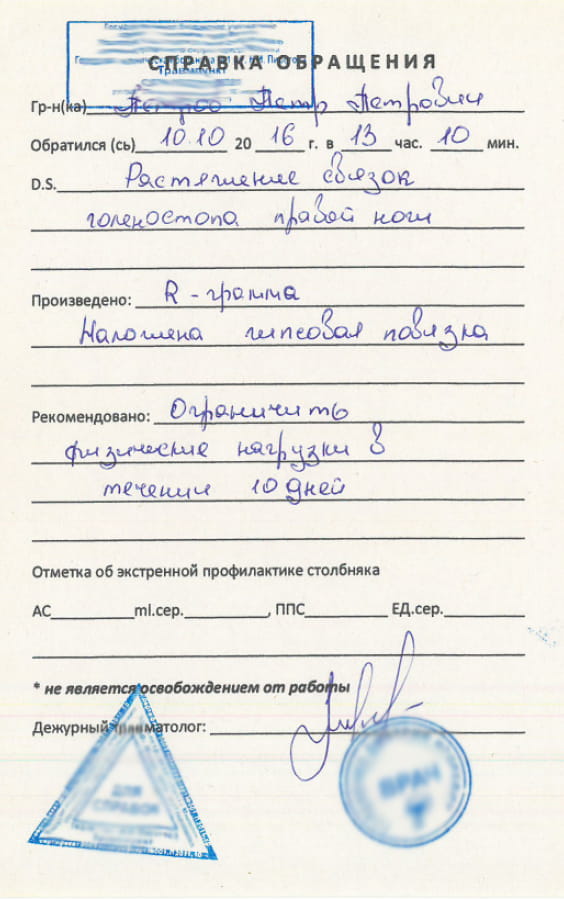 Травмпункт
СПРАВКА ОБРАЩЕНИЯ
Гр-н(ка) Петров Петр Петрович
Обратился (сь) 10.10 20 16 г. в 13 час. 10 мин.
D.S. Растяжение связок
голеностопа правой ноги
Произведено: R-грамма
Наложена гипсовая повязка
Рекомендовано: Ограничить
физические нагрузки в
течении 10 дней
Отметка об экстренной профилактике столбняка
АС ml.сер. , ППС ЕД.сер.
* не является освобождением от работы
Дежурный травматолог:
ДЛЯ
СПРАВОК
ВРАЧ